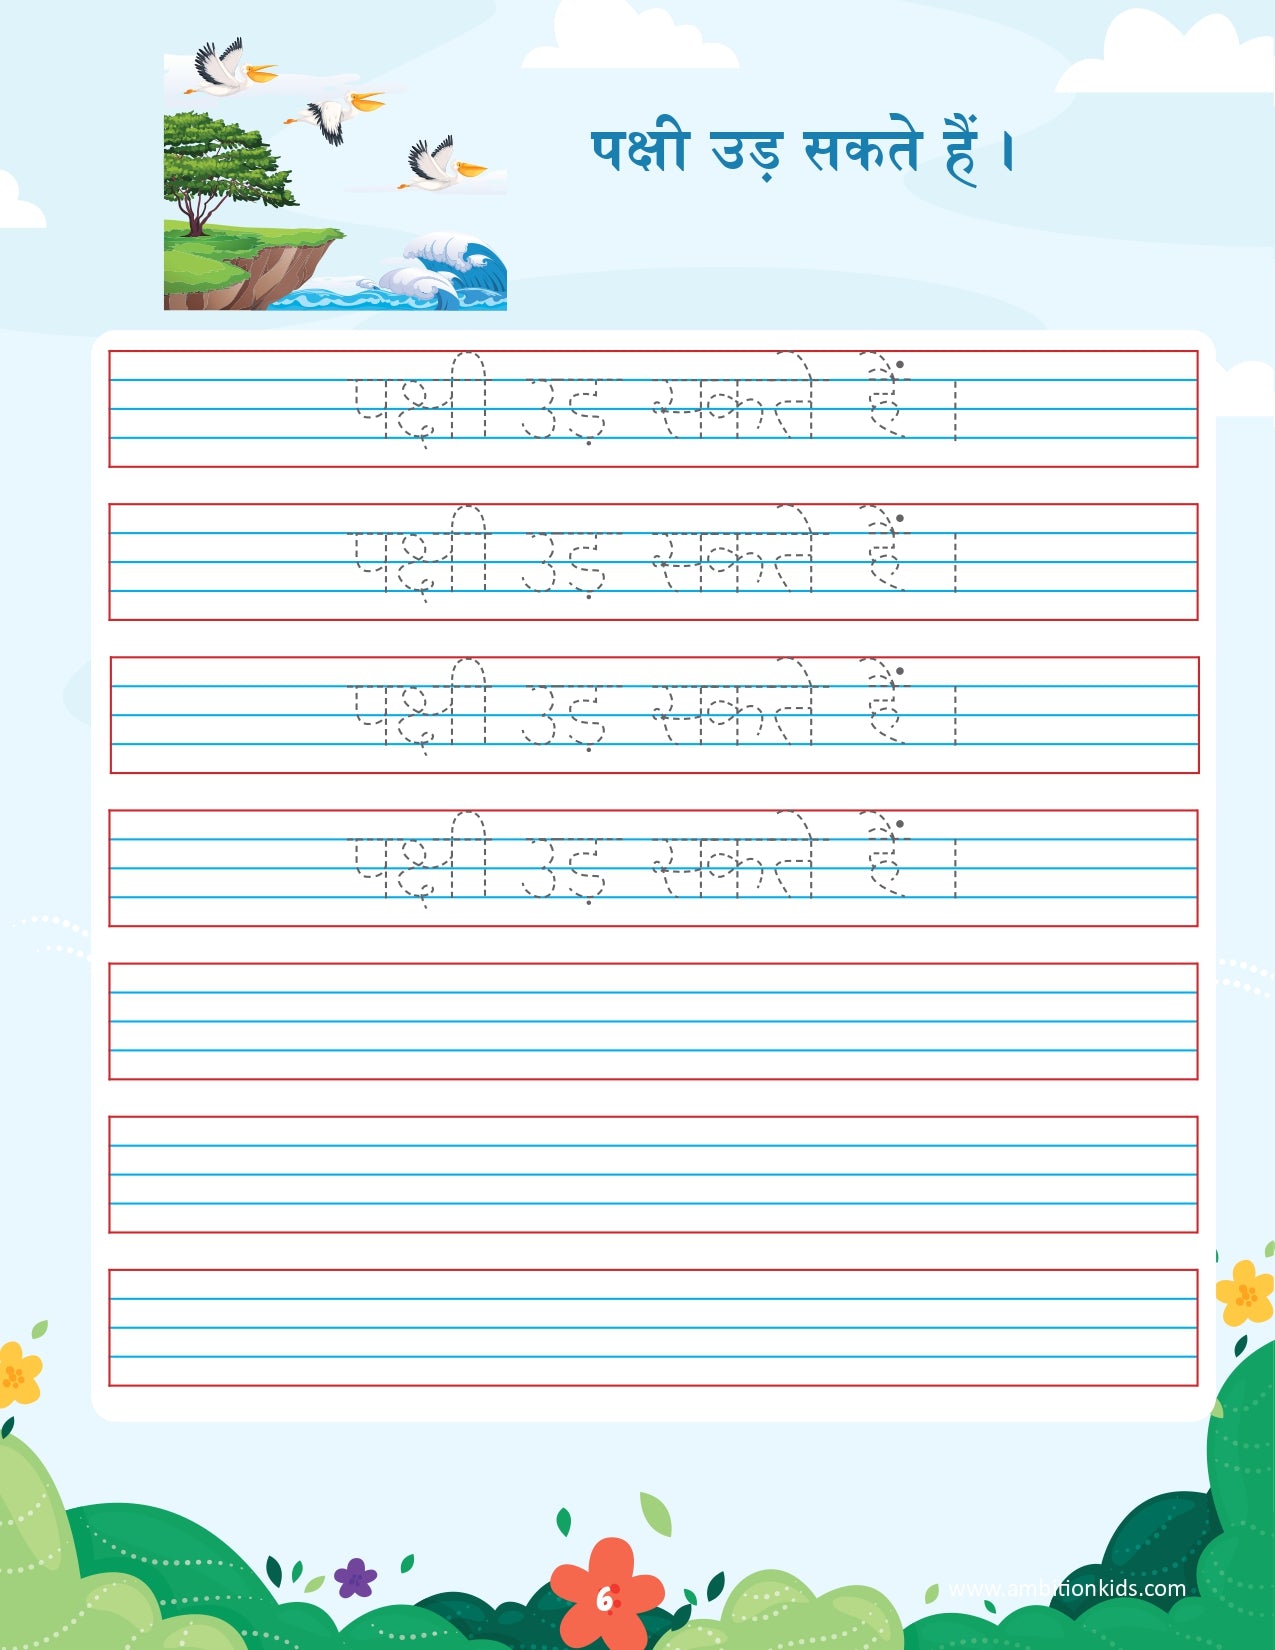 पक्षी उड़ सकते हैं ।
पक्षी उड़ सकते हैं।
पक्षी उड़ सकते हैं।
पक्षी उड़ सकते हैं।
पक्षी उड़ सकते हैं।
6
www.ambitionkids.com